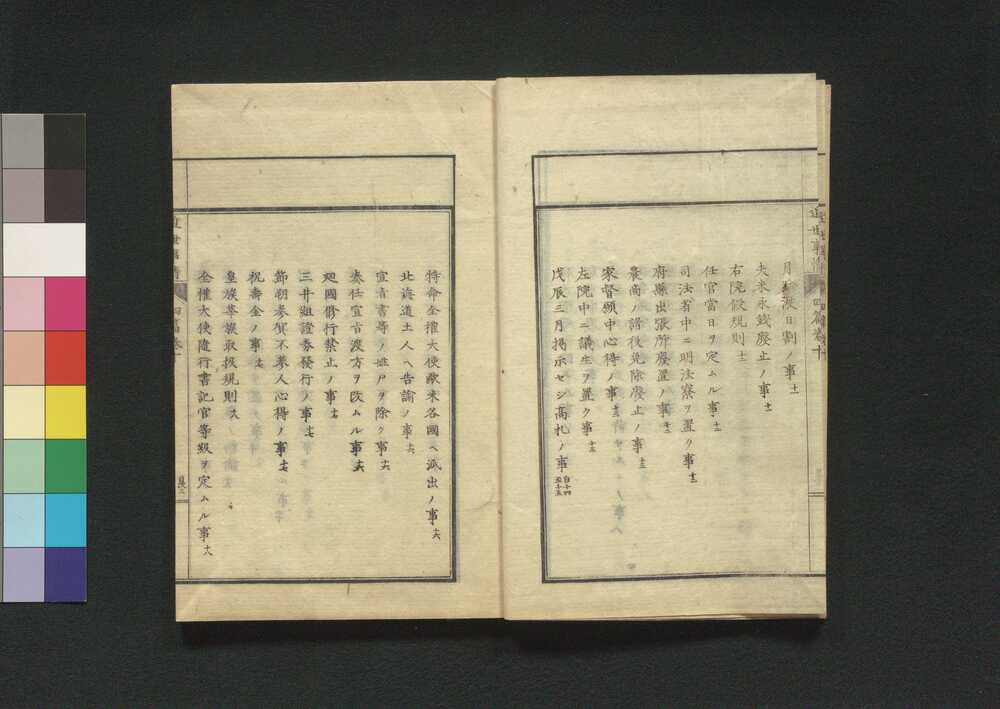 月給渡日割ノ事 十一
夫米永銭廢止ノ事 十一
右院假規則 十二
任官當日ヲ定ムル事 十二
司法省中ニ明法寮ヲ置ク事 十二
府縣出張所廢置ノ事 十三
農商ノ諸役免除廢止ノ事 十三
家督願中心得ノ事
左院中ニ議生ヲ置ク事 十三
戊辰三月掲示セシ高札ノ事 自十四至十五
特命全權大使歐米各國ヘ派出ノ事 十六
北海道土人ヘ告諭ノ事 十六
宣旨書等ノ姓尸ヲ除ク事 十六
奏任宣旨渡方ヲ改ムル事 十六
廻國修行禁止ノ事 十七
三井組證券發行ノ事 十七
節朔参賀不参人心得ノ事 十七
祝壽金ノ事 十七
皇族華族取扱規則 十八
全權大使隨行書記官等級ヲ定ムル事 十八
近世事情
四篇巻十